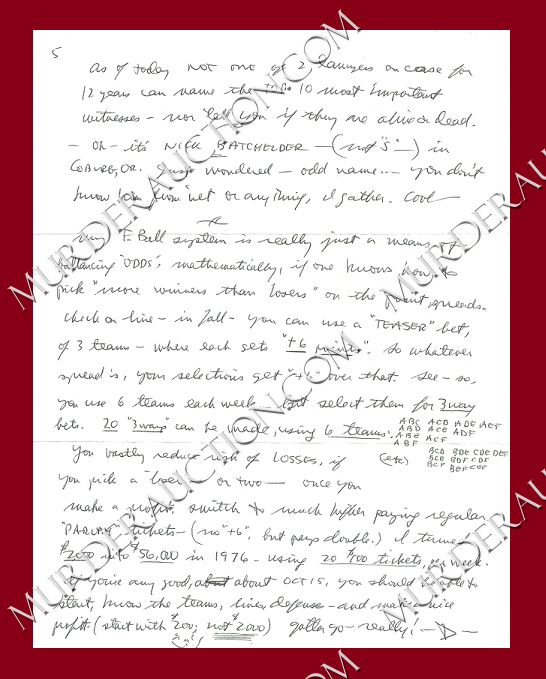 5
as of today NOT one of 2 lawyers on case for
12 years can name the top 10 most important
witnesses – nor tell you if they are alive or dead.
– Oh – it's NICK BATCHELDER – (not "S" –) in
COBURG, OR. Just wondered – odd name... you don't
know him from 'net or anything, I gather. Cool –
my F. Ball system is really just a means of
balancing 'ODDS', mathematically, if one knows how to
pick "more winners than losers" on the point spreads.
Check on line – in fall – you can use a "TEASER" bet,
of 3 teams – where each gets "+6 points". So whatever
spread is, your selections get "+6" over that. See – so,
you use 6 teams each week – but select them for 3 way
bets. 20 "3 ways" can be made, using 6 teams.
ABC ACD ADE AEF
ABD ACE ADF
ABE ACF
ABF
BCD BDE CDE DEF
BCE BDF CDF
BCF BEF CEF
(etc)
You vastly reduce risk of LOSSES, if
you pick a loser or two – once you
make a profit, switch to much higher paying regular
"PARLAY" tickets – (no "+6", but pays double.) I turned
$2000 into $56,000 in 1976 – using 20 $100 tickets, per week.
If you're any good, about about OCT 15, you should be able to
start, know the teams, lines, defense – and make a nice
profit (start with $200; not $2000) gotta go – really! – D –
MURDERAUCTION.COM
MURDERAUCTION.COM
MURDERAUCTION.COM
MURDERAUCTION.COM